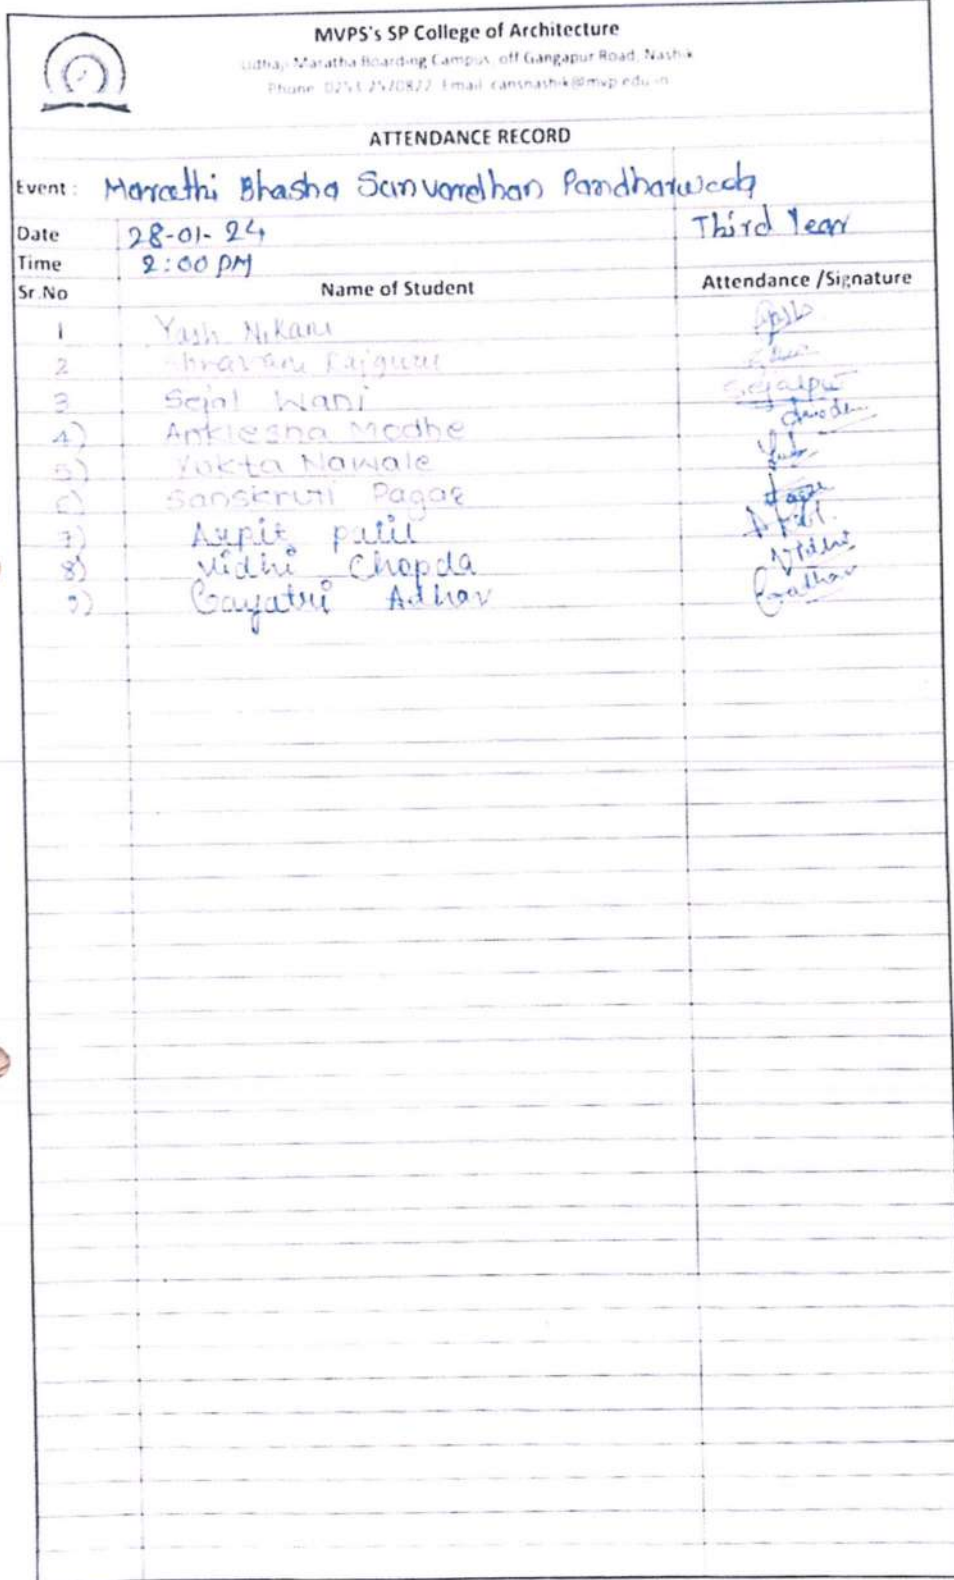 MVPS's SP College of Architecture
Udhaji Maratha Boarding Campus, off Gangapur Road, Nashik
Phone: 0253-2570822 Email: cansnashik@mvp.edu.in
ATTENDANCE RECORD
Event: Marathi Bhasha Sanvardhan Pandharwada
Date 28-01-24 Third Year
Time 2:00 PM
Sr.No Name of Student Attendance /Signature
1 Yash Nikam
2 Shravani Rajguru
3 Sejal Wani
4) Anklesha Modhe
5) Yukta Nawale
6) Sanskruti Pagar
7) Arpit patil
8) Vidhi Chopda Vidhi
9) Gayatri Adhav